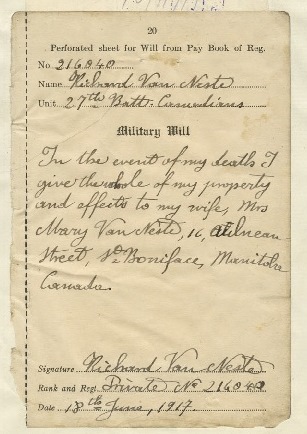 20
Perforated sheet for Will from Pay Book of Reg.
No 216040
Name Richard Van Neste
Unit 27th Batt. Canadians
Military Will
In the event of my death I
give the whole of my property
and effects to my wife, Mrs
Mary Van Neste, 16,
Street, St Boniface, Manitoba
Canada.
Signature Richard Van Neste
Rank and Regt Private No 216040
Date 18th June, 1917.